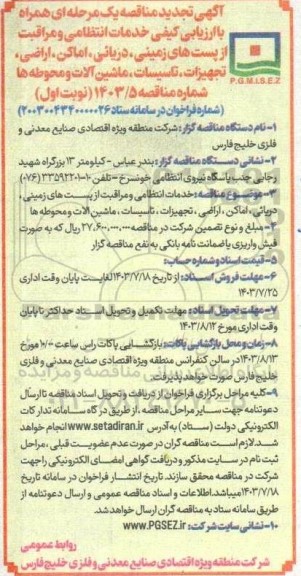 آگهی تجدید مناقصه یک مرحله ای همراه
با ارزیابی کیفی خدمات انتظامی و مراقبت
از پست های زمینی، دریائی، اماکن، اراضی،
تجهیزات، تاسیسات، ماشین آلات و محوطه ها
شماره مناقصه ۱۴۰۳/۵ (نوبت اول)
P.G.M.I.S.E.Z
(شماره فراخوان در سامانه ستاد ۲۰۰۳۰۰۴۳۴۰۰۰۰۰۲۶)
۱- نام دستگاه مناقصه گزار: شرکت منطقه ویژه اقتصادی صنایع معدنی و
فلزی خلیج فارس
۲- نشانی دستگاه مناقصه گزار: بندرعباس - کیلومتر ۱۳ بزرگراه شهید
رجایی جنب پاسگاه نیروی انتظامی خونسرخ - تلفن ۱۰-۳۳۵۹۲۲۰۱ (۰۷۶)
۳- موضوع مناقصه: خدمات انتظامی و مراقبت از پست های زمینی،
دریائی، اماکن، اراضی، تجهیزات، تاسیسات، ماشین آلات و محوطه ها
۴- مبلغ و نوع تضمین شرکت در مناقصه: ۲۷,۶۰۰,۰۰۰,۰۰۰ ریال که به صورت
فیش واریزی یا ضمانت نامه بانکی به نفع مناقصه گزار
۵- قیمت اسناد و شماره حساب:
۶- مهلت فروش اسناد: از تاریخ ۱۴۰۳/۷/۱۸ لغایت پایان وقت اداری
۱۴۰۳/۷/۲۵
۷- مهلت تحویل اسناد: مهلت تکمیل و تحویل اسناد حداکثر تا پایان
وقت اداری مورخ ۱۴۰۳/۸/۱۲
۸- زمان و محل بازگشایی پاکات: بازگشایی پاکات راس ساعت ۱۰/۰۰ مورخ
۱۴۰۳/۸/۱۳ در سالن کنفرانس منطقه ویژه اقتصادی صنایع معدنی و فلزی
خلیج فارس صورت خواهد پذیرفت.
۹- کلیه مراحل برگزاری فراخوان از دریافت و تحویل اسناد مناقصه تا ارسال
دعوتنامه جهت سایر مراحل مناقصه، از طریق درگاه سامانه تدارکات
الکترونیکی دولت (ستاد) به آدرس www.setadiran.ir انجام خواهد
شد. لازم است مناقصه گران در صورت عدم عضویت قبلی، مراحل
ثبت نام در سایت مذکور و دریافت گواهی امضای الکترونیکی را جهت
شرکت در مناقصه محقق سازند. تاریخ انتشار فراخوان در سامانه تاریخ
۱۴۰۳/۷/۱۸ میباشد. اطلاعات و اسناد مناقصه عمومی و ارسال دعوتنامه از
طریق سامانه ستاد به مناقصه گران ارسال خواهد شد.
۱۰- نشانی سایت شرکت: www.PGSEZ.ir
روابط عمومی
شرکت منطقه ویژه اقتصادی صنایع معدنی و فلزی خلیج فارس